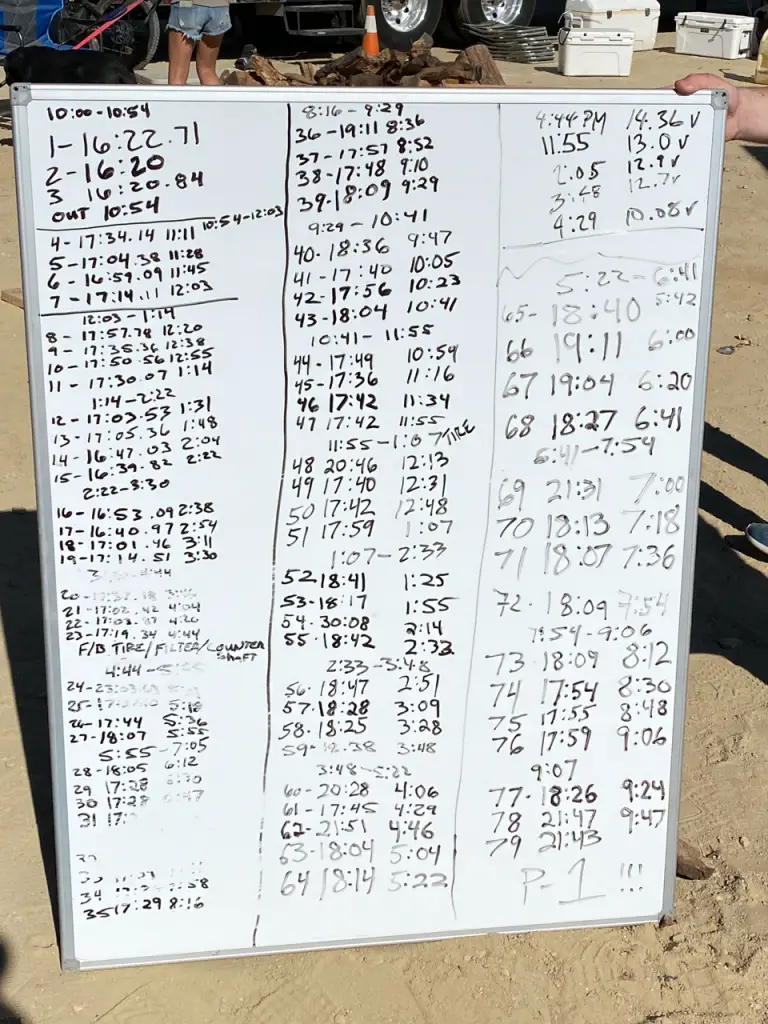 10:00-10:54
1-16:22.71
2-16:20
3 16:20.84
OUT 10:54
10:54-12:03
4-17:34.14 11:11
5-17:04.38 11:28
6-16:59.09 11:45
7-17:14.11 12:03
12:03-1:14
8-17:57.78 12:20
9-17:35.36 12:38
10-17:50.56 12:55
11-17:30.07 1:14
1:14-2:22
12-17:03.53 1:31
13-17:05.36 1:48
14-16:47.03 2:04
15-16:39.82 2:22
2:22-3:30
16-16:53.09 2:38
17-16:40.97 2:54
18-17:01.46 3:11
19-17:14.51 3:30
3:30-4:44
21-17:02.42 4:04
22-17:03.87 4:20
23-17:19.34 4:44
F/B TIRE/FILTER/COUNTER shaft
4:44-5:55
25- 5:18
26-17:44 5:36
27-18:07 5:55
5:55-7:05
28-18:05 6:12
29 17:28 6:30
30 17:28 6:47
31 17:
34
35 17:29 8:16
8:16-9:29
36-19:11 8:36
37-17:57 8:52
38-17:48 9:10
39-18:09 9:29
9:29-10:41
40-18:36 9:47
41-17:40 10:05
42-17:56 10:23
43-18:04 10:41
10:41-11:55
44-17:49 10:59
45-17:36 11:16
46 17:42 11:34
47 17:42 11:55
11:55-1:07 TIRE
48 20:46 12:13
49 17:40 12:31
50 17:42 12:48
51 17:59 1:07
1:07-2:33
52 18:41 1:25
53-18:17 1:55
54-30:08 2:14
55-18:42 2:33
2:33-3:48
56-18:47 2:51
57-18:28 3:09
58-18:25 3:28
59- 3:48
3:48-5:22
60-20:28 4:06
61-17:45 4:29
62-21:51 4:46
63-18:04 5:04
64 18:14 5:22
4:44 PM 14.36v
11:55 13.0v
2:05 12.9v
3:48 12.7v
4:29 10.08v
5:22-6:41
65-18:40 5:42
66 19:11 6:00
67 19:04 6:20
68 18:27 6:41
6:41-7:54
69 21:31 7:00
70 18:13 7:18
71 18:07 7:36
72-18:09 7:54
7:54-9:06
73 18:09 8:12
74 17:54 8:30
75 17:55 8:48
76 17:59 9:06
9:07
77-18:26 9:24
78 21:47 9:47
79 21:43
P-1 !!!